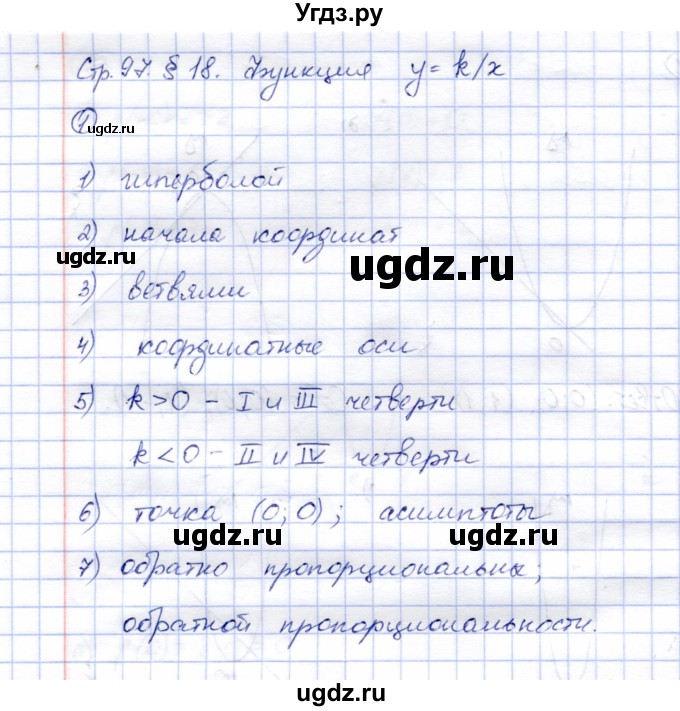 Угдз.ру
Стр. 97. § 18. Функция y = k/x
1
ugdz.ru
1) гиперболой
2) начала координат
ugdz.ru
ugdz.ru
3) ветвями
4) координатные оси
5) k > 0 – I и III четверти
k < 0 – II и IV четверти
6) точка (0; 0); асимптоты
ugdz.ru
ugdz.ru
7) обратно пропорциональны;
обратной пропорциональности.
ugdz.ru